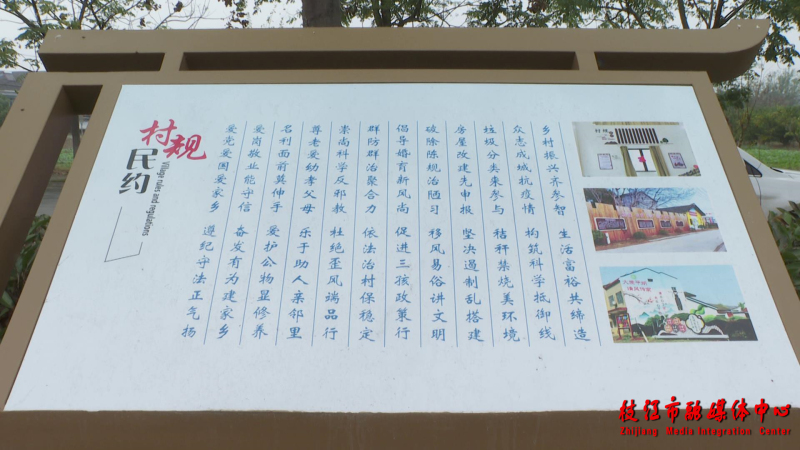 村规
民约
Village rules and regulations
爱党爱国爱家乡 遵纪守法正气扬
爱岗敬业能守信 奋发有为建家乡
名利面前莫伸手 爱护公物显修养
尊老爱幼孝父母 乐于助人亲邻里
崇尚科学反邪教 杜绝歪风端品行
群防群治聚合力 依法治村保稳定
倡导婚育新风尚 促进三孩政策行
破除陈规治陋习 移风易俗讲文明
房屋改建先申报 坚决遏制乱搭建
垃圾分类来参与 秸秆禁烧美环境
众志成城抗疫情 构筑科学抵御线
乡村振兴齐参智 生活富裕共缔造
枝江市融媒体中心
Zhijiang Media Integration Center